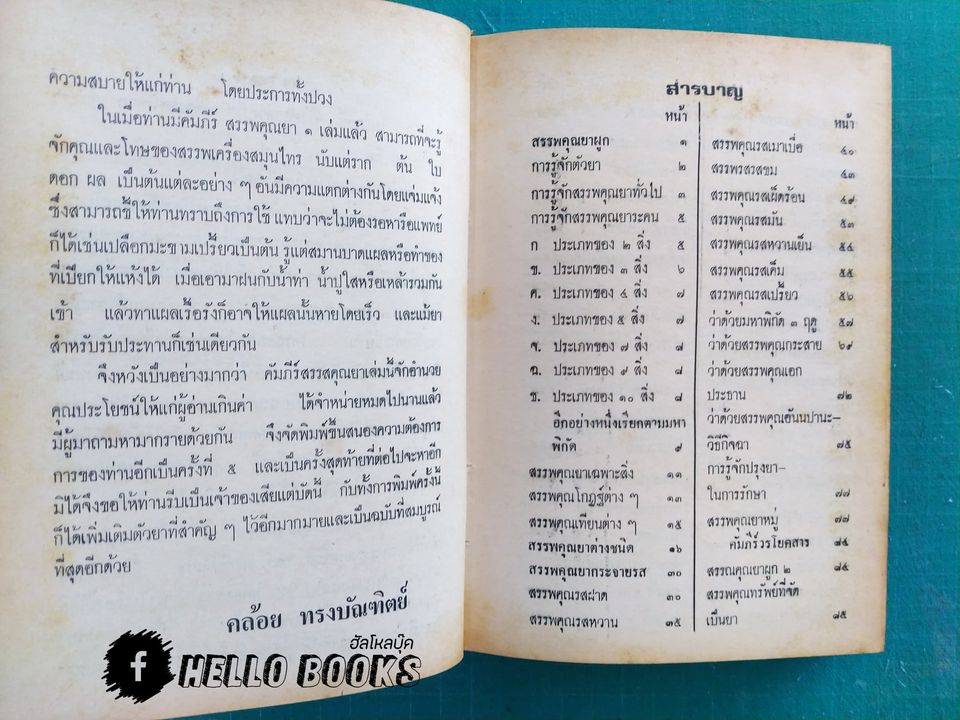 ความสบายให้แก่ท่าน โดยประการทั้งปวง
ในเมื่อท่านมีคัมภีร์ สรรพคุณยา ๑ เล่มแล้ว สามารถที่จะรู้
จักคุณและโทษของสรรพเครื่องสมุนไทร นับแต่ราก ต้น ใบ
ดอก ผล เป็นต้นแต่ละอย่าง ๆ อันมีความแตกต่างกันโดยแจ่มแจ้ง
ซึ่งสามารถชี้ให้ท่านทราบถึงการใช้ แทบว่าจะไม่ต้องรอหารือแพทย์
ก็ได้เช่นเปลือกมะขามเปรี้ยวเป็นต้น รู้แต่สมานบาดแผลหรือทำของ
ที่เปียกให้แห้งได้ เมื่อเอามาฝนกับน้ำท่า น้ำปูใสหรือเหล้ารวมกัน
เข้า แล้วทาแผลเรื้อรังก็อาจให้แผลนั้นหายโดยเร็ว และแม้ยา
สำหรับรับประทานก็เช่นเดียวกัน
จึงหวังเป็นอย่างมากว่า คัมภีร์สรสคุณยาเล่มนี้จักอำนวย
คุณประโยชน์ให้แก่ผู้อ่านเกินค่า ได้จำหน่ายหมดไปนานแล้ว
มีผู้มาถามหามากรายด้วยกัน จึงจัดพิมพ์ขึ้นสนองความต้องการ
การของท่านอีกเป็นครั้งที่ ๕ และเป็นครั้งสุดท้ายที่ต่อไปจะหาอีก
มิได้จึงขอให้ท่านรีบเป็นเจ้าของเสียแต่บัดนี้ กับทั้งการพิมพ์ครั้งนี้
ก็ได้เพิ่มเติมตัวยาที่สำคัญ ๆ ไว้อีกมากมายและเป็นฉบับที่สมบูรณ์
ที่สุดอีกด้วย
คล้อย ทรงบัณฑิตย์
ฮัลโหลบุ๊ค
f HELLO BOOKS
สารบาญ
หน้า
สรรพคุณยาผูก ๑
การรู้จักตัวยา ๒
การรู้จักสรรพคุณยาทั่วไป ๓
การรู้จักสรรพคุณยาระคน ๕
ก ประเภทของ ๒ สิ่ง ๕
ข. ประเภทของ ๓ สิ่ง ๖
ค. ประเภทของ ๔ สิ่ง ๗
ง. ประเภทของ ๕ สิ่ง ๗
จ. ประเภทของ ๗ สิ่ง ๘
ฉ. ประเภทของ ๙ สิ่ง ๘
ช. ประเภทของ ๑๐ สิ่ง ๘
อีกอย่างหนึ่งเรียกตามมหา
พิกัด ๙
สรรพคุณยาเฉพาะสิ่ง ๑๑
สรรพคุณโกฏฐ์ต่าง ๆ ๑๓
สรรพคุณเทียนต่าง ๆ ๑๕
สรรพคุณยาต่างชนิด ๑๖
สรรพคุณยากระจายรส ๓๐
สรรพคุณรสฝาด ๓๐
สรรพคุณรสหวาน ๓๕
หน้า
สรรพคุณรสเมาเบื่อ ๔๐
สรรพรสรสขม ๔๓
สรรพคุณรสเผ็ดร้อน ๔๙
สรรพคุณรสมัน ๕๓
สรรพคุณรสหวานเย็น ๕๔
สรรพคุณรสเค็ม ๕๕
สรรพคุณรสเปรี้ยว ๕๖
ว่าด้วยมหาพิกัด ๓ ฤดู ๕๗
ว่าด้วยสรรพคุณกระสาย ๖๙
ว่าด้วยสรรพคุณเอก
ประธาน ๗๒
ว่าด้วยสรรพคุณอันนปานะ–
วิธีกิจฉา ๗๕
การรู้จักปรุงยา–
ในการรักษา ๗๗
สรรพคุณยาหมู่ ๗๗
คัมภีร์วรโยคสาร ๘๕
สรรณคุณยาผูก ๒ ๘๕
สรรพคุณทรัพย์ที่จัด
เป็นยา ๘๕